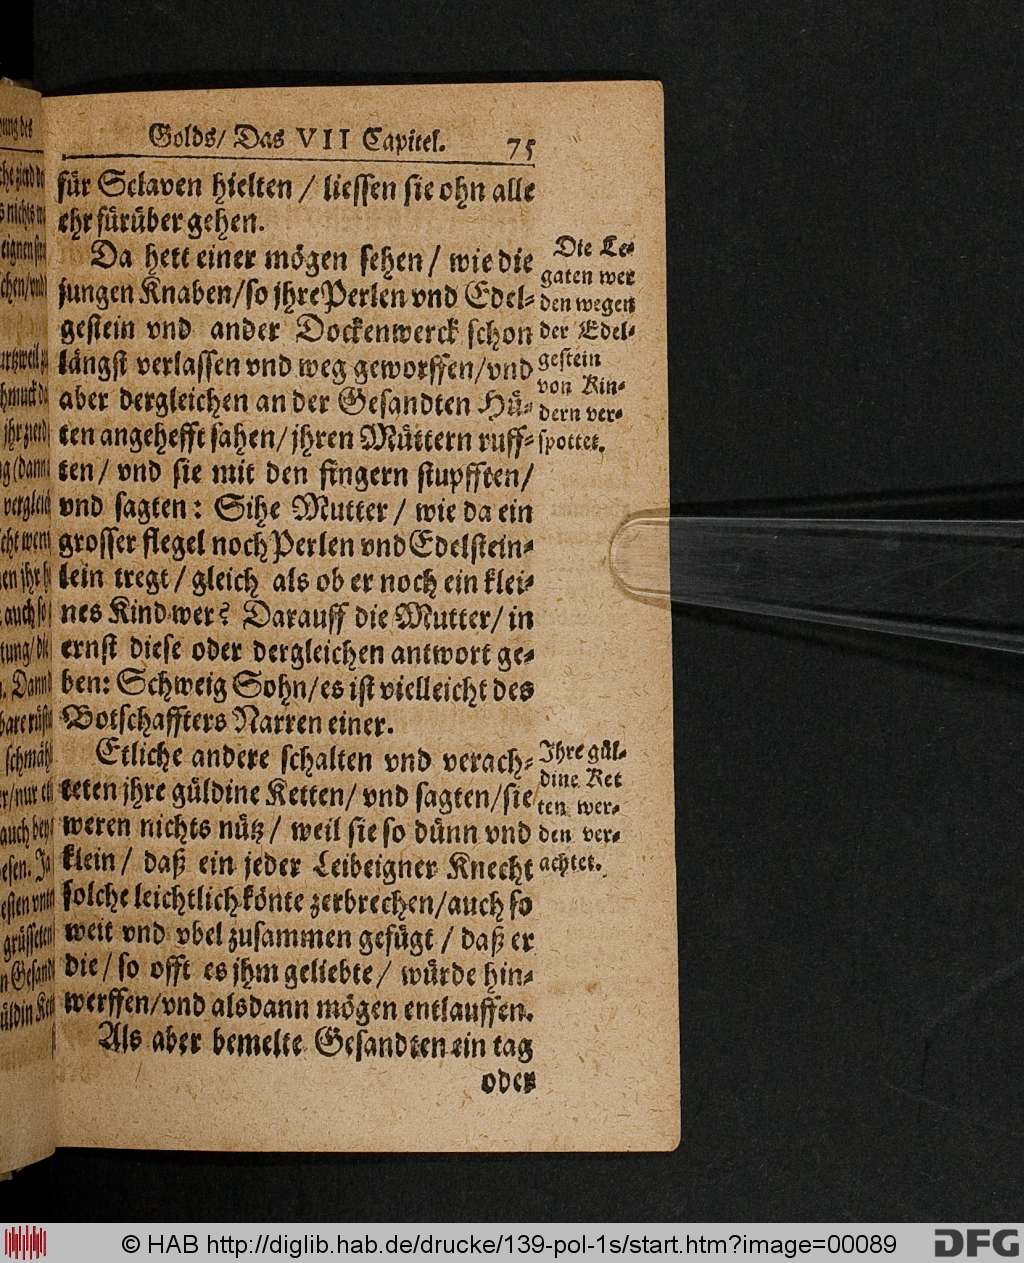 Golds/ Das VII Capitel. 75
für Sclaven hielten / liessen sie ohn alle
ehr fürüber gehen.
Da hett einer mögen sehen / wie die
jungen Knaben/so jhre Perlen vnd Edel-
gestein vnd ander Dockenwerck schon
längst verlassen vnd weg geworffen/vnd
aber dergleichen an der Gesandten Hü-
ten angehefft sahen/ jhren Müttern ruff-
ten/ vnd sie mit den fingern stupfften/
vnd sagten: Sihe Mutter / wie da ein
grosser flegel noch Perlen vnd Edelstein-
lein tregt / gleich als ob er noch ein klei-
nes Kind wer? Darauff die Mutter/ in
ernst diese oder dergleichen antwort ge-
ben: Schweig Sohn/es ist vielleicht des
Botschaffters Narren einer.
Etliche andere schalten vnd verach-
teten jhre güldine Ketten/ vnd sagten/sie
weren nichts nütz / weil sie so dünn vnd
klein / daß ein jeder Leibeigner Knecht
solche leichtlich könte zerbrechen/auch so
weit vnd vbel zusammen gefügt / daß er
die / so offt es jhm geliebte / würde hin-
werffen/vnd alsdann mögen entlauffen.
Als aber bemelte Gesandten ein tag
oder
Die Le-
gaten wer
den wegen
der Edel-
gestein
von Kin-
dern ver-
spottet.
Jhre gül-
dine Ket
ten wer-
den ver-
achtet.
© HAB http://diglib.hab.de/drucke/139-pol-1s/start.htm?image=00089
DFG